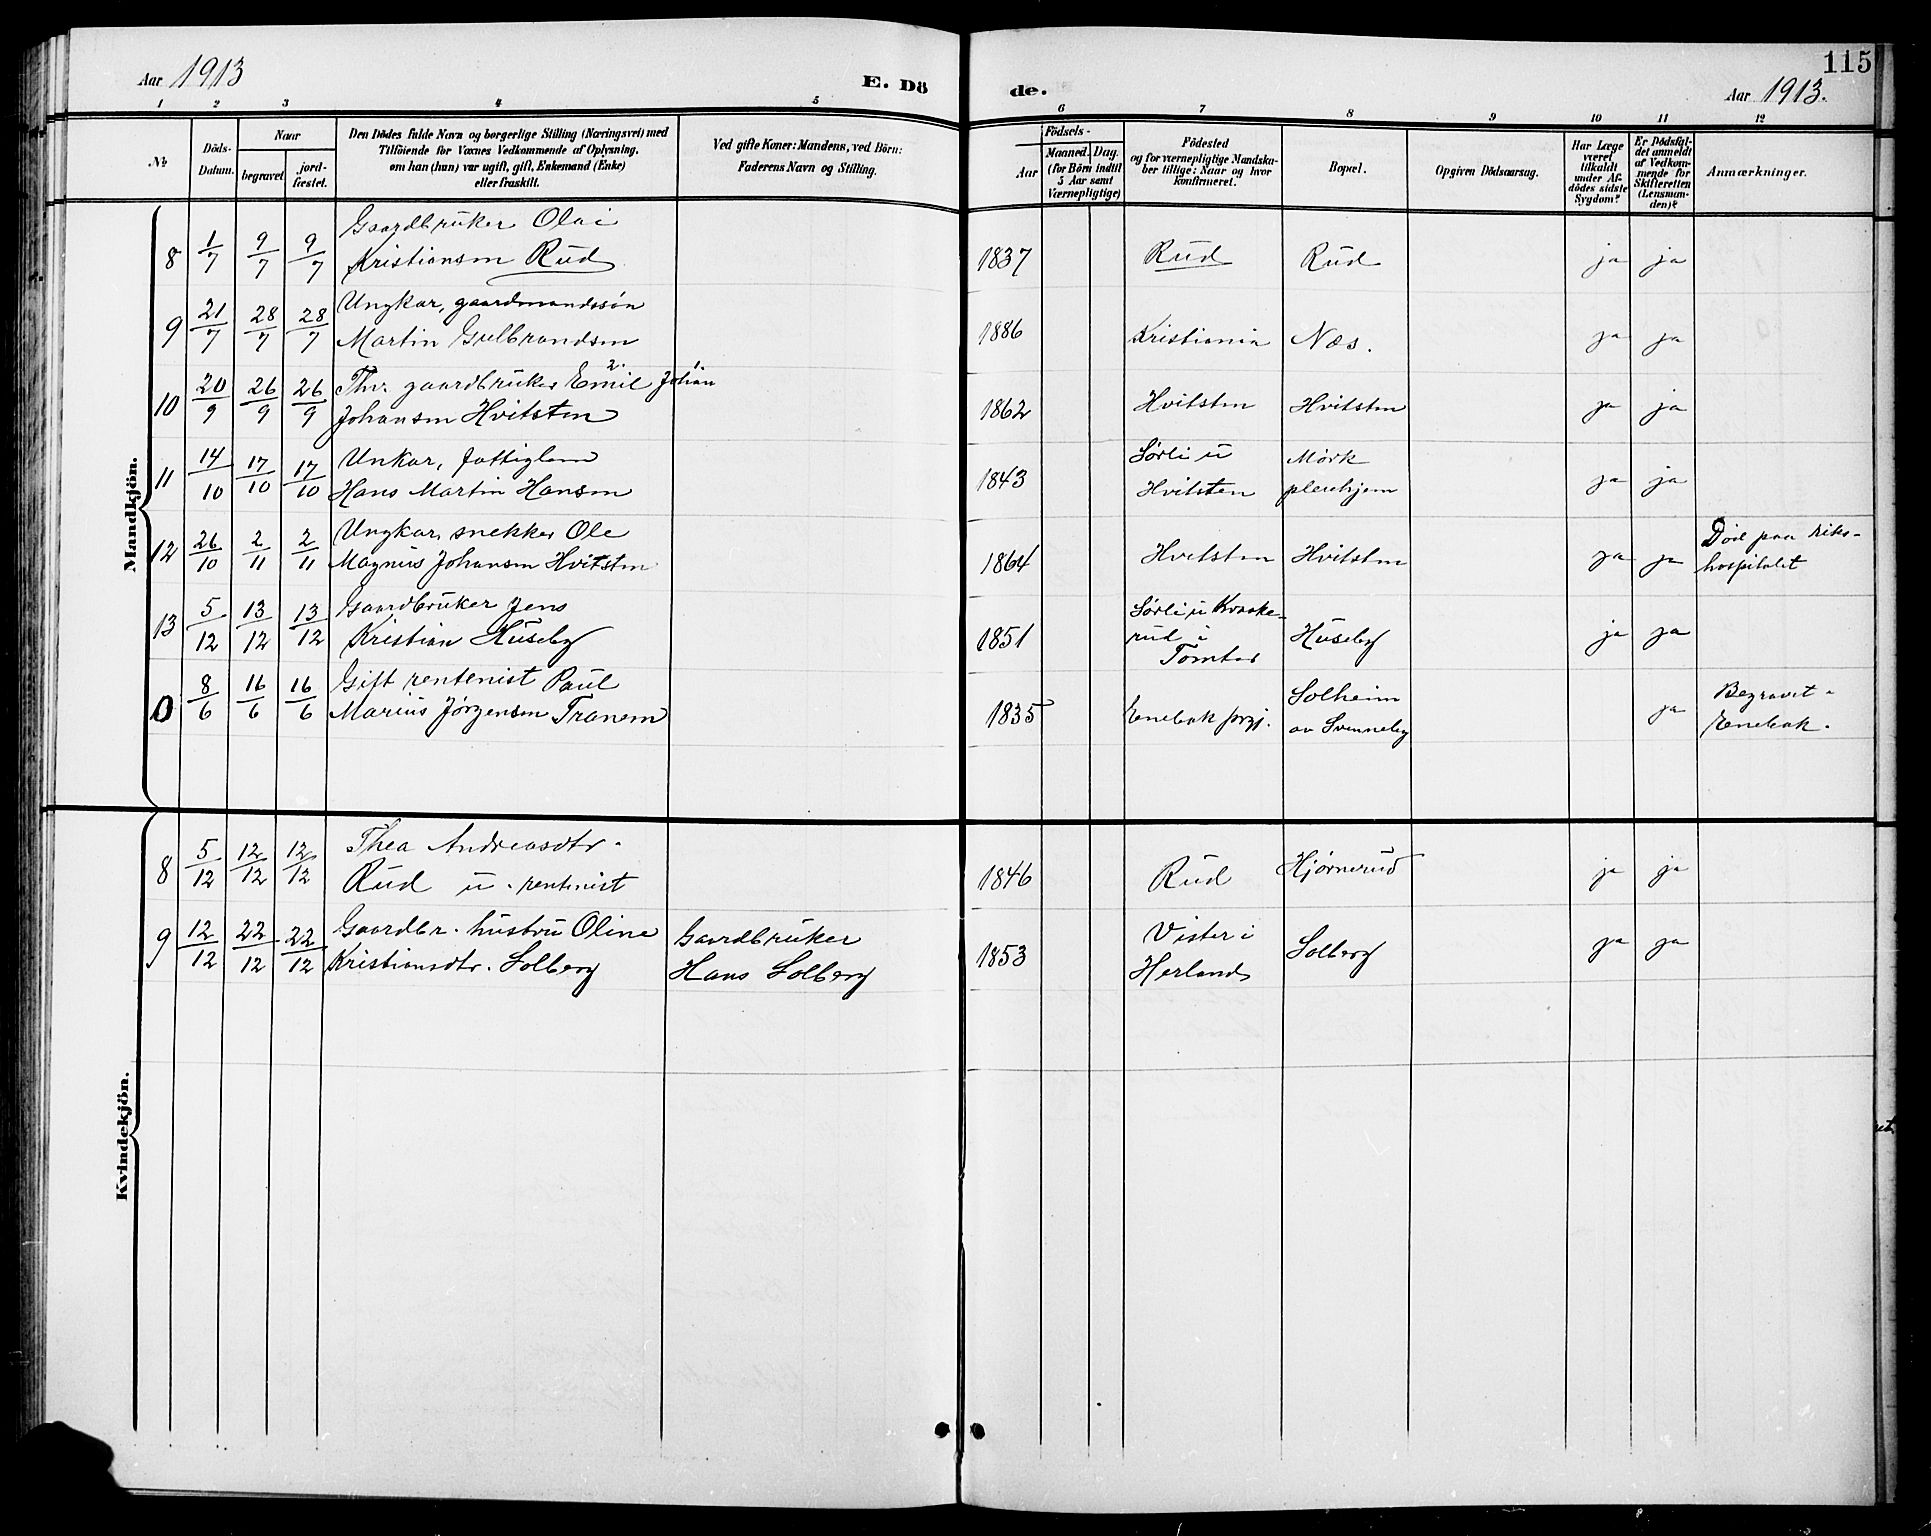 Aar 1913
E. Dö
de.
115
Aar 1913.
1 2 3 4 5 6 7 8 9 10 11 12
No
Döds-Datum.
Naar
begravet
jord-fæstet.
Den Dödes fulde Navn og borgerlige Stilling (Næringsvei) med
Tilföiende for Voxnes Vedkommende af Oplysning,
om han (hun) var ugift, gift, Enkemand (Enke)
eller fraskilt.
Ved gifte Koner: Mandens, ved Börn:
Faderens Navn og Stilling.
Födsels-
Aar
Maaned. Dag.
(for Börn indtil
5 Aar samt
Værnepligtige)
Födested
og for værnepligtige Mandska-
ber tillige: Naar og hvor
konfirmeret.
Bopæl.
Opgiven Dödsaarsag.
Har Læge
været
tilkaldt
under Af-
dödes sidste
Sygdom?
Er Dödsfal-
det anmeldt
af Vedkom-
mende for
Skifteretten
(Lensman-
den)?
Anmærkninger.
Mandkjön.
8 1/7 9/7 9/7 Gaardbruker Olai
Kristiansen Rud 1837 Rud Rud ja ja
9 21/7 28/7 28/7 Ungkar, gaardmandssøn
Martin Gulbrandsen 1886 Kristiania Næs. ja ja
10 20/9 26/9 26/9 Fhv. gaardbruker Emil Johan
Johansen Hvitsten 1862 Hvitsten Hvitsten ja ja
11 14/10 17/10 17/10 Unkar, fattiglem
Hans Martin Hansen 1843 Sørli u
Hvitsten Mørk
pleiehjem ja ja
12 26/10 2/11 2/11 Ungkar, snekker Ole
Magnus Johansen Hvitsten 1864 Hvitsten Hvitsten ja ja Död paa riks-
hospitalet
13 5/12 13/12 13/12 Gaardbruker Jens
Kristian Huseby 1851 Sørli u Kraake-
rud i
Tomter Huseby ja ja
0 8/6 16/6 16/6 Gift rentenist Paul
Marius Jørgensen Tranem 1835 Enebak prgj. Solheim
av Svenneby ja Begravet i
Enebak.
Kvindekjön.
8 5/12 12/12 12/12 Thea Andreasdtr.
Rud u. rentenist 1846 Rud Hjørnerud ja ja
9 12/12 22/12 22/12 Gaardbr. hustru Oline
Kristiansdtr. Solberg Gaardbruker
Hans Solberg 1853 Vister i
Herland Solberg ja ja